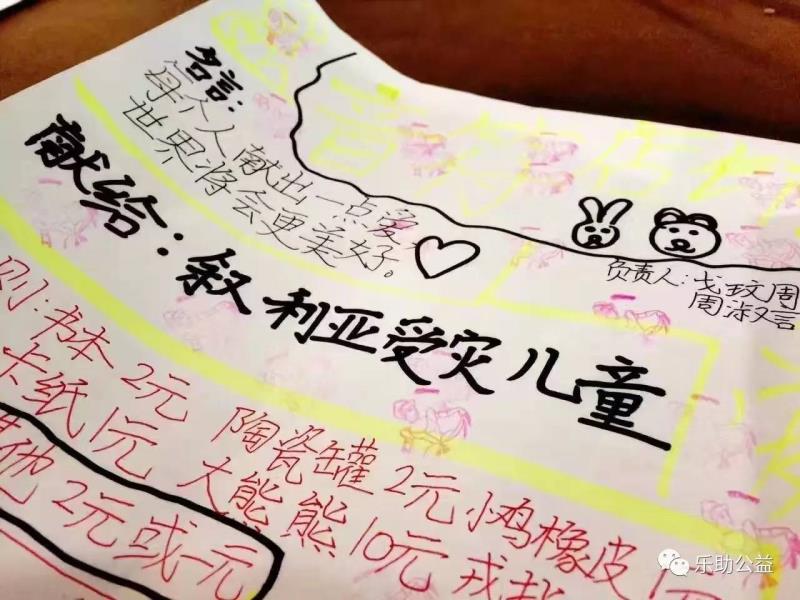 名言:
每人人献出一点爱,
世界将会更美好。
负责人:戈玟周
周淑言
献给:叙利亚受灾儿童
则:书本2元
卡纸1元 陶瓷罐2元 小鸡橡皮1元
其他2元或一元 大熊熊10元
乐助公益